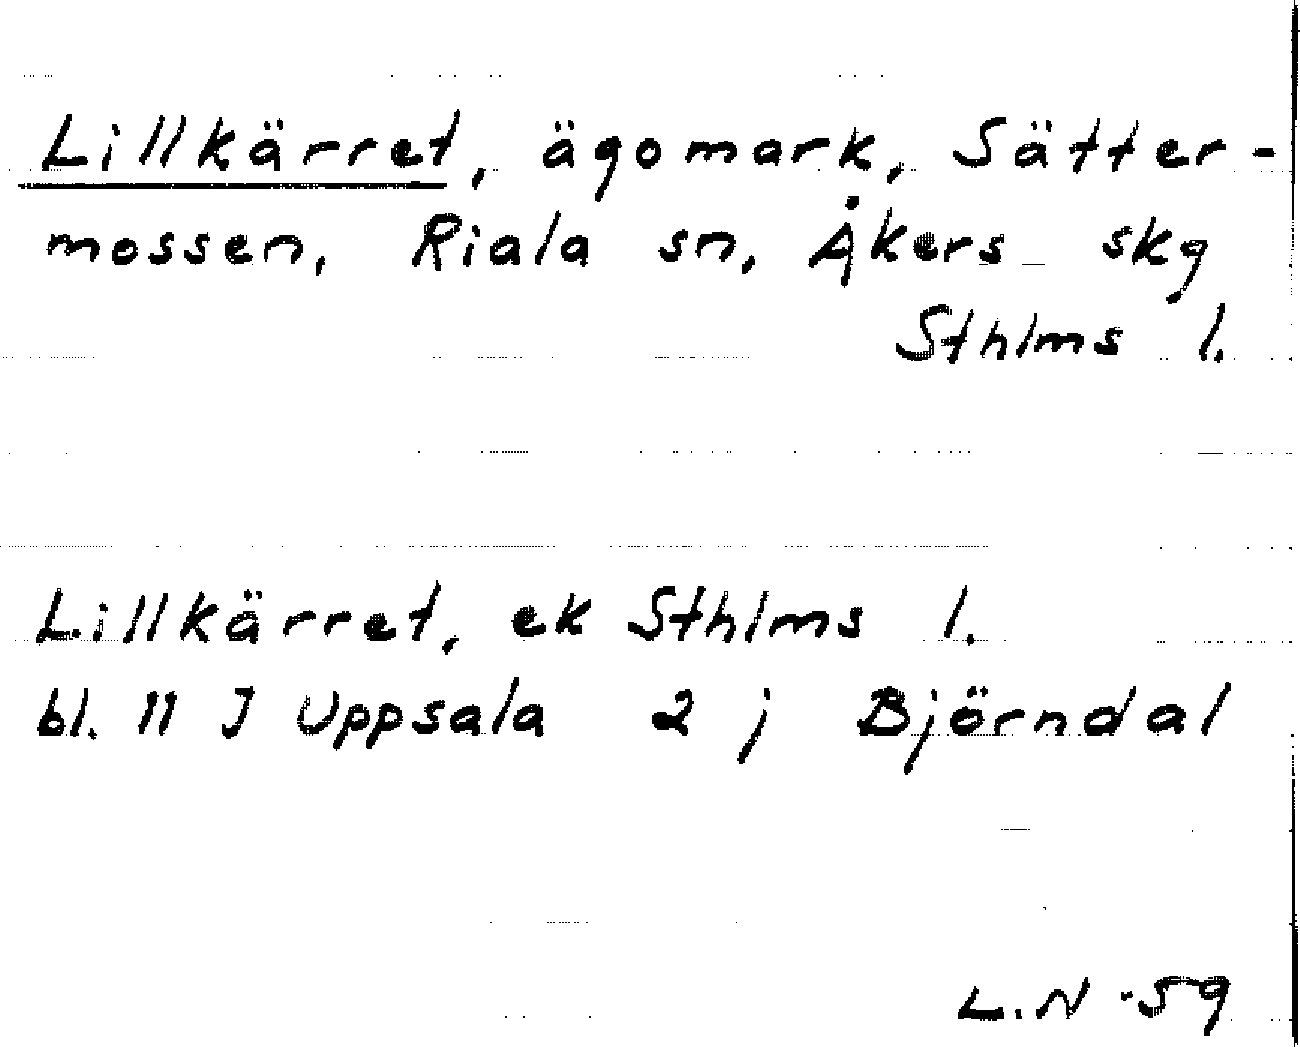 Lillkärret, ägomark, Sätter-
mossen, Riala sn, Åkers skg
Sthlms l.
Lillkärret, ek Sthlms l.
bl. 11 J Uppsala 2 j Björndal
L.N -59